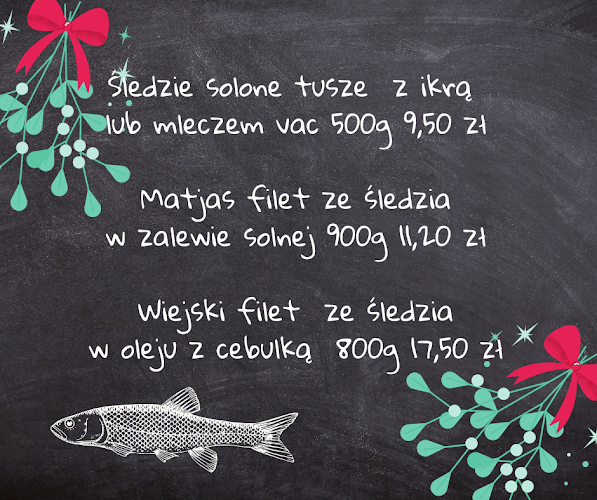 Śledzie solone tusze z ikrą
lub mleczem vac 500g 9,50 zł
Matjas filet ze śledzia
w zalewie solnej 900g 11,20 zł
Wiejski filet ze śledzia
w oleju z cebulką 800g 17,50 zł